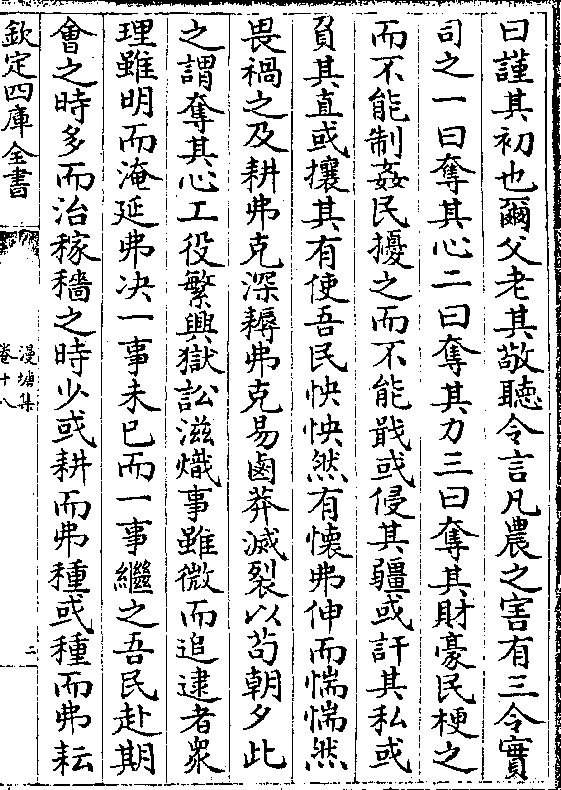 曰謹其初也爾父老其敬聽令言凡農之害有三令實
司之一曰奪其心二曰奪其力三曰奪其財豪民梗之
而不能制姦民擾之而不能戢或侵其疆或訐其私或
負其直或攘其有使吾民怏怏然有懐弗伸而惴惴然
畏禍之及耕弗克深耨弗克易鹵莽滅裂以茍朝夕此
之謂奪其心工役繁興獄訟滋熾事雖微而追逮者衆
理雖明而淹延弗决一事未已而一事繼之吾民赴期
會之時多而治稼穡之時少或耕而弗種或種而弗耘
欽定四庫全書
漫塘集
卷十八
三